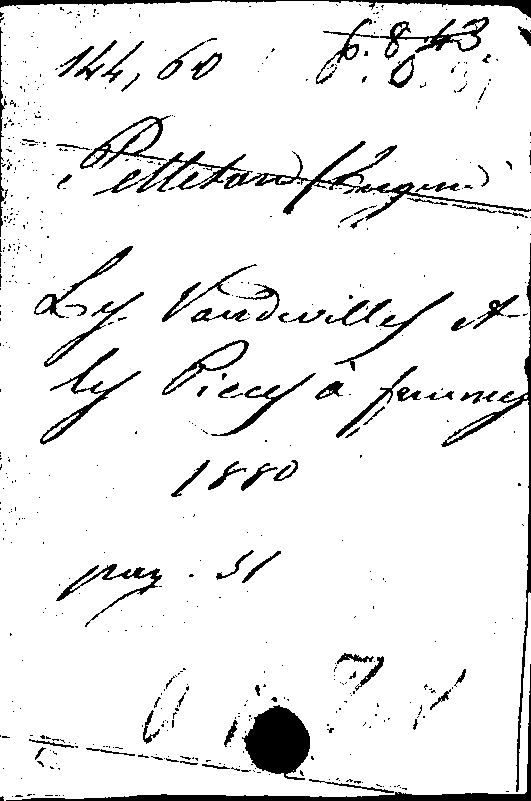 144,60 p. 8.43
Pelletan (Eugène)
Les Vaudevilles et
les Pieces à femmes
1880
pag. 31